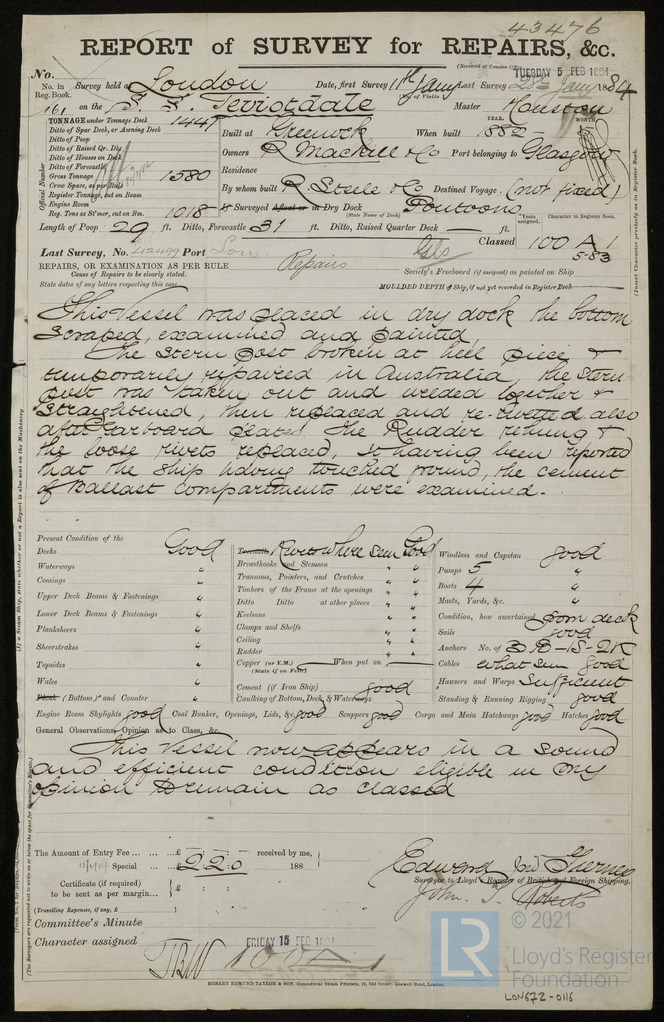 43476
REPORT of SURVEY for REPAIRS, &c.
(Received at London Office
TUESDAY 5 FEB 1884
No.
No. in Reg. Book. Survey held at London Date, first Survey 11th Jany Last Survey 28th Jany 1884
161 on the S. S. Teviotdale Master Houston
TONNAGE under Tonnage Deck 1447
Ditto of Spar Deck, or Awning Deck
Ditto of Poop
Ditto of Raised Qr. Dk.
Ditto of Houses on Deck
Ditto of Forecastle
Gross Tonnage 1580
Crew Space, as per Rule
Register Tonnage, cut on Beam
Engine Room
Reg. Tons as St'mer, cut on Bm. 1018
Official Number
Built at Greenock When built 1882 YEAR. MONTH.
Owners R Mackill & Co Port belonging to Glasgow
Residence
By whom built R Steele & Co Destined Voyage. (not fixed)
If Surveyed Afloat or in Dry Dock Pontoons
(State Name of Dock)
Length of Poop 29 ft. Ditto, Forecastle 31 ft. Ditto, Raised Quarter Deck — ft.
Years assigned Character in Register Book.
Last Survey, No. 42499 Port Lon. Gls Classed 100 A 1
5.83
REPAIRS, OR EXAMINATION AS PER RULE Repairs
Cause of Repairs to be clearly stated.
State dates of any letters respecting this case
Society's Freeboard (if assigned) as painted on Ship
MOULDED DEPTH of Ship, if not yet recorded in Register Book
(Insert Character previously as in Register Book.
This Vessel was placed in dry dock the bottom
scraped, examined and painted
The stern post broken at heel piece &
temporarily repaired in Australia, the stern
post was taken out and welded together &
straightened, then replaced and re-rivetted also
after Garboard plates. The Rudder rehung &
the loose rivets replaced, It having been reported
that the ship having touched ground, the cement
of Ballast compartments were examined.
Present Condition of the
Decks Good
Waterways "
Comings "
Upper Deck Beams & Fastenings "
Lower Deck Beams & Fastenings "
Planksheers "
Sheerstrakes "
Topsides "
Wales "
Plank (Bottom) and Counter "
Treenails Rivets where seen Good
Breasthooks and Stemson " "
Transoms, Pointers, and Crutches " "
Timbers of the Frame at the openings " "
Ditto Ditto at other places " "
Keelsons " "
Clamps and Shelfs " "
Ceiling " "
Rudder " "
Copper (or Y.M.) — When put on —
(State if on Felt)
Cement (if Iron Ship) good
Caulking of Bottom, Deck, & Waterways
Windlass and Capstan good
Pumps 5 "
Boats 4 "
Masts, Yards, &c. "
Condition, how ascertained from deck
Sails good
Anchors No. of 3 B - 1S - 2K
Cables what seen good
Hawsers and Warps Sufficient
Standing & Running Rigging good
Engine Room Skylights good Coal Bunker, Openings, Lids, &c. good Scuppers good Cargo and Main Hatchways good Hatches good
General Observations, Opinion as to Class, &c.
This Vessel now appears in a sound
and efficient condition eligible in my
opinion to remain as classed
The Amount of Entry Fee ... ... £ : : received by me,
Special ... £ 2 2 0 188
Certificate (if required) to be sent as per margin... £ : :
(Travelling Expenses, if any, £ )
Surveyor to Lloyd's Register of British and Foreign Shipping.
John. T. Roberts
Committee's Minute
FRIDAY 15 FEB 1884
Character assigned 100A1
ROBERT EDMUND TAYLOR & SON, Commercial Steam Printers, 19, Old Street, Goswell Road, London.
LR
© 2021
Lloyd's Register
Foundation
LON672-0116